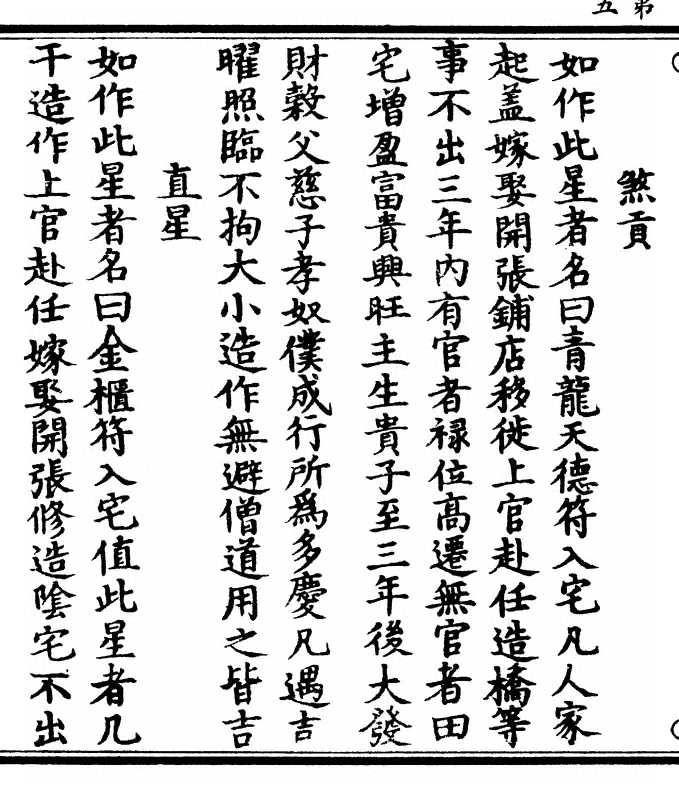 第五
煞貢
如作此星者名曰青龍天德符入宅凡人家
起盖嫁娶開張鋪店移徙上官赴任造橋等
事不出三年內有官者禄位高遷無官者田
宅增盈富貴興旺主生貴子至三年後大發
財穀父慈子孝奴僕成行所為多慶凡遇吉
曜照臨不拘大小造作無避僧道用之皆吉
直星
如作此星者名曰金櫃符入宅值此星者凡
干造作上官赴任嫁娶開張修造陰宅不出